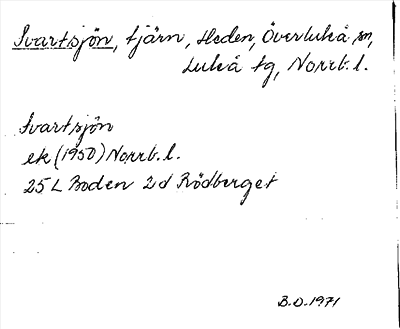 Svartsjön, tjärn, Heden, Överluleå sn,
Luleå tg, Norrb. l.
Svartsjön
ek (1950) Norrb. l.
25 L Boden 2d Rödberget
B.O. 1971